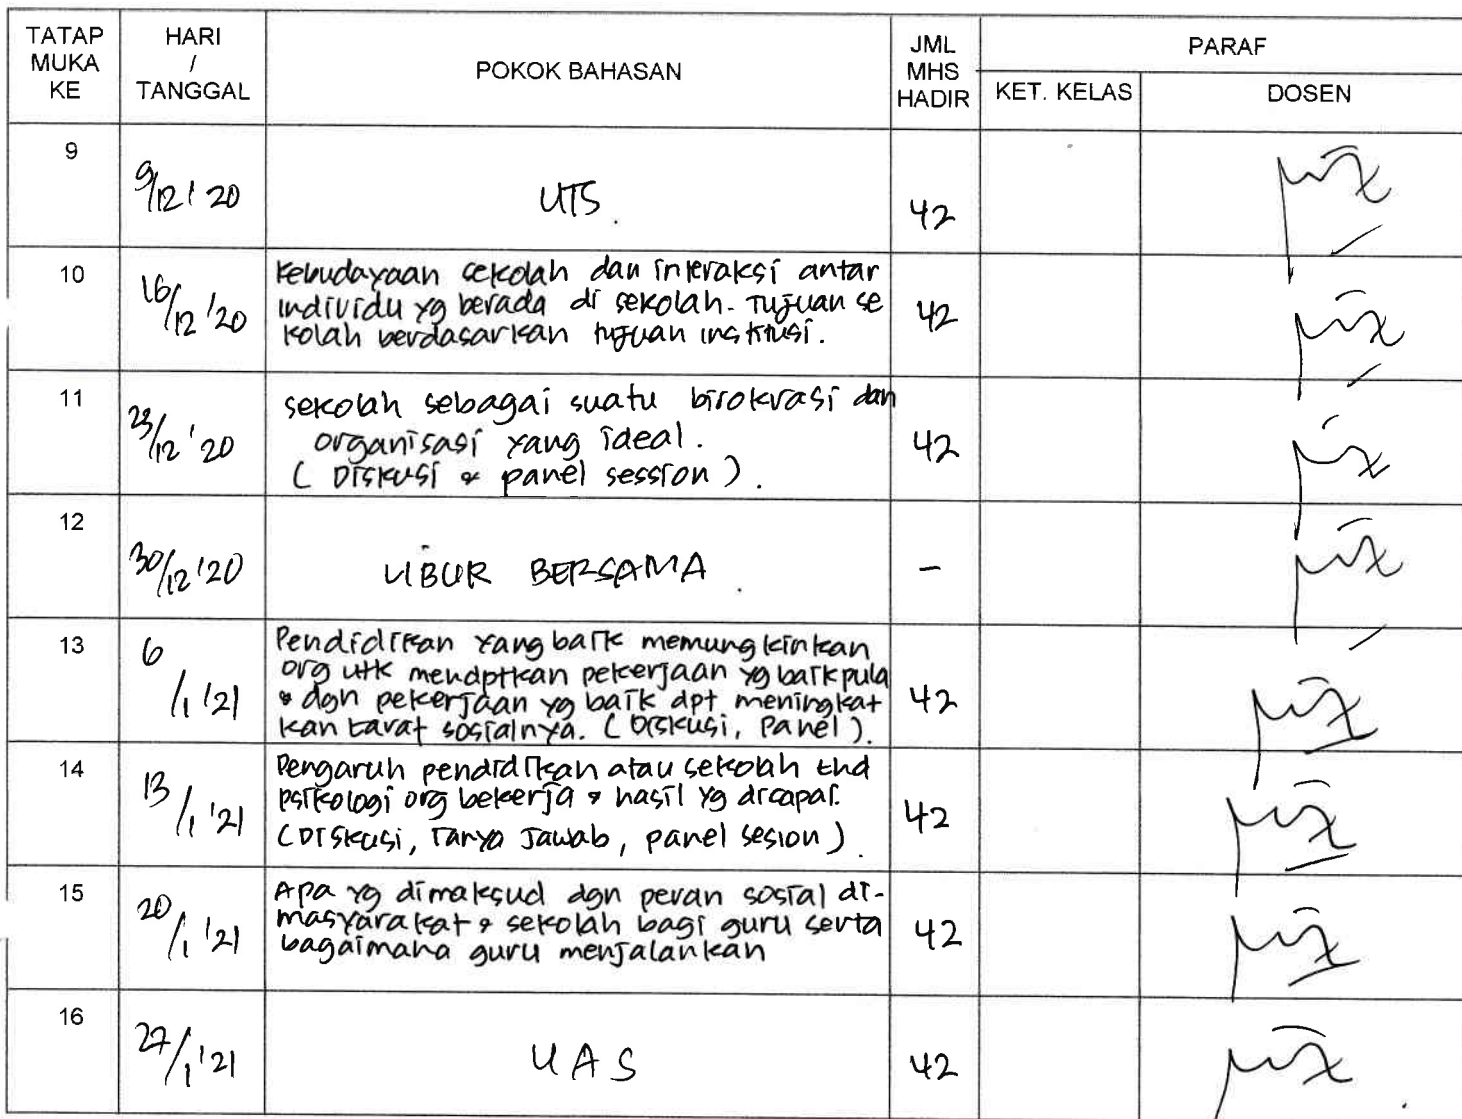 TATAP MUKA KE HARI / TANGGAL POKOK BAHASAN JML MHS HADIR PARAF
KET. KELAS DOSEN
9 9/12 '20 UTS. 42
10 16/12 '20 Kebudayaan sekolah dan interaksi antar
individu yg berada di sekolah. Tujuan se
kolah berdasarkan tujuan institusi. 42
11 23/12 '20 sekolah sebagai suatu birokrasi dan
organisasi yang ideal.
(Diskusi & panel session). 42
12 30/12 '20 LIBUR BERSAMA. -
13 6/1 '21 Pendidikan yang baik memungkinkan
org utk mendptkan pekerjaan yg baik pula
& dgn pekerjaan yg baik dpt meningkat
kan taraf sosialnya. (Diskusi, Panel). 42
14 13/1 '21 Pengaruh pendidikan atau sekolah thd
psikologi org bekerja & hasil yg dicapai.
(Diskusi, Tanya Jawab, panel sesion). 42
15 20/1 '21 Apa yg dimaksud dgn peran sosial di-
masyarakat & sekolah bagi guru serta
bagaimana guru menjalankan 42
16 27/1 '21 UAS 42